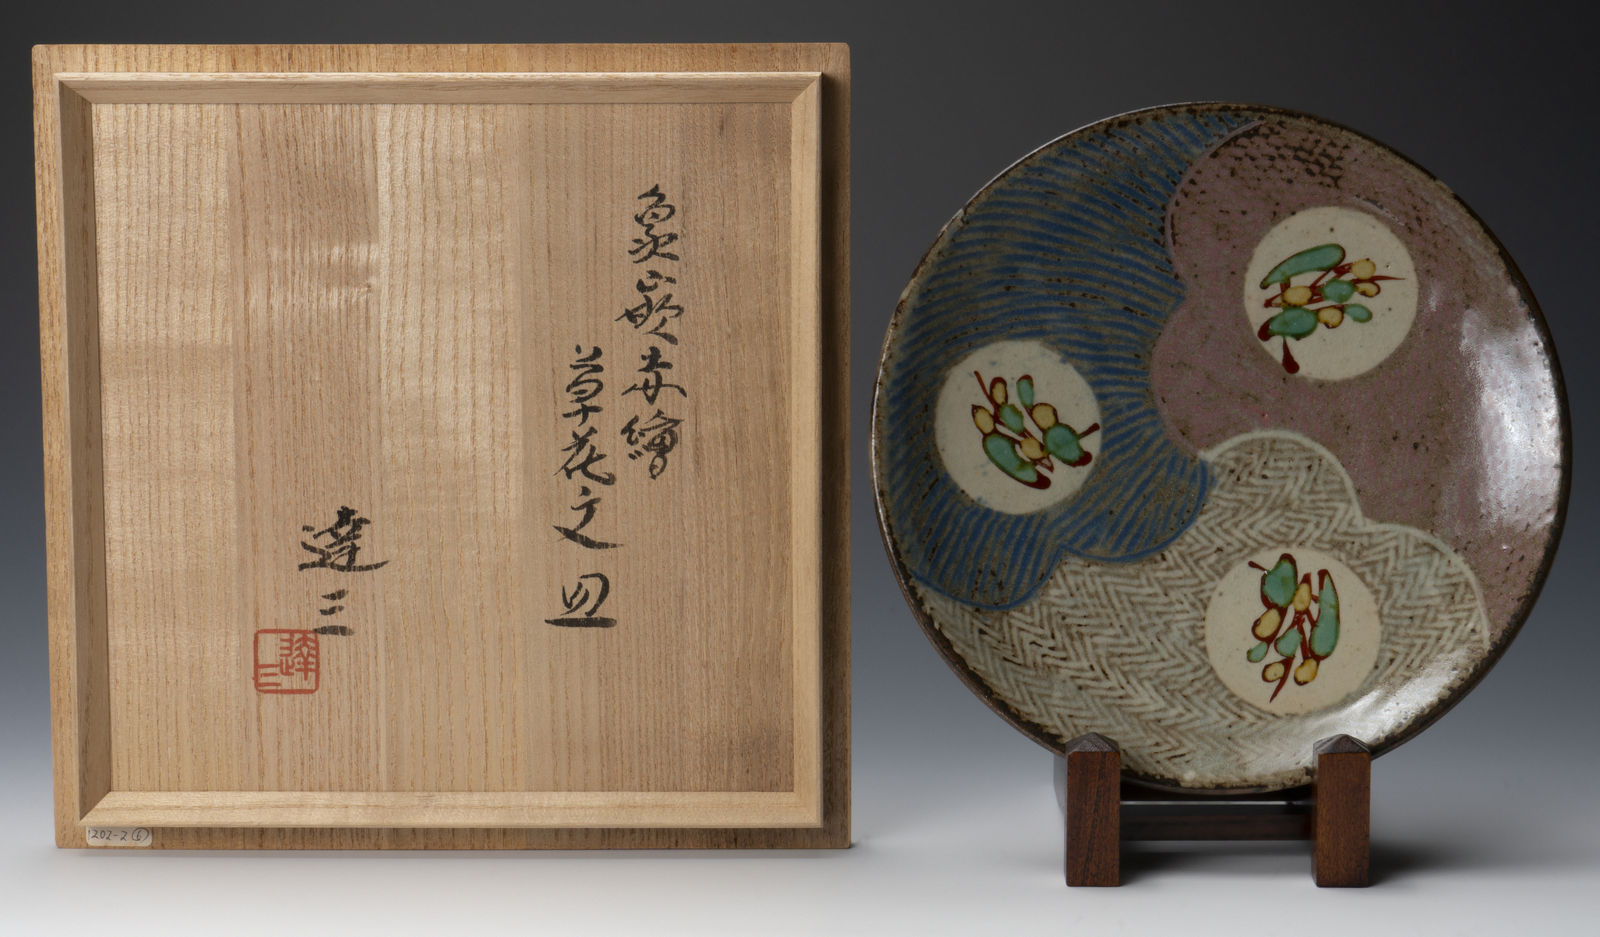 象嵌赤繪
草花文皿
達三
達三
202-2 ⑥